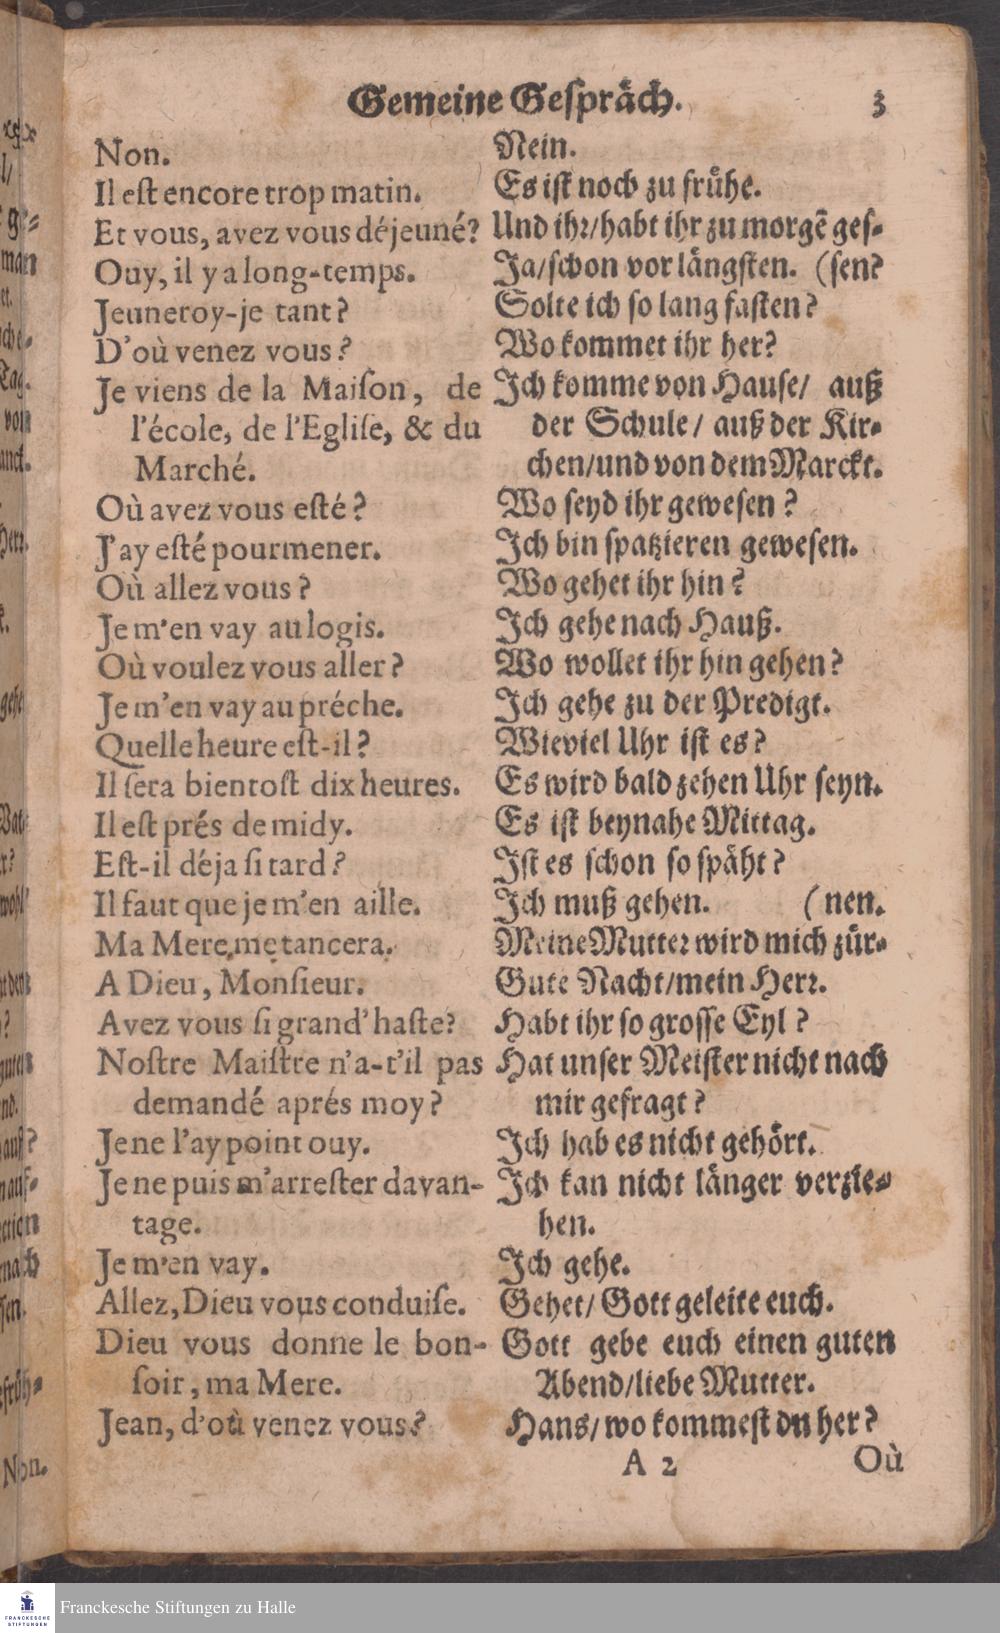 Gemeine Gespräch. 3
Non.
Il est encore trop matin.
Et vous, avez vous déjeuné?
Ouy, il y a long-temps.
Jeuneroy-je tant?
D'où venez vous?
Je viens de la Maiſon, de
l'école, de l'Egliſe, & du
Marché.
Où avez vous eſté?
J'ay eſté pourmener.
Où allez vous?
Je m'en vay au logis.
Où voulez vous aller?
Je m'en vay au préche.
Quelle heure eſt-il?
Il ſera bientoſt dix heures.
Il eſt prés de midy.
Eſt-il déja ſi tard?
Il faut que je m'en aille.
Ma Mere me tancera.
A Dieu, Monſieur.
Avez vous ſi grand' haſte?
Noſtre Maiſtre n'a-t'il pas
demandé aprés moy?
Je ne l'ay point ouy.
Je ne puis m'arreſter davan-
tage.
Je m'en vay.
Allez, Dieu vous conduiſe.
Dieu vous donne le bon-
ſoir, ma Mere.
Jean, d'où venez vous?
Nein.
Es iſt noch zu frühe.
Und ihr/habt ihr zu morgẽ geſ-
Ja/ſchon vor längſten. (ſen?
Solte ich ſo lang faſten?
Wo kommet ihr her?
Ich komme von Hauſe/ auß
der Schule/ auß der Kir-
chen/und von dem Marckt.
Wo ſeyd ihr geweſen?
Ich bin ſpatzieren geweſen.
Wo gehet ihr hin?
Ich gehe nach Hauß.
Wo wollet ihr hin gehen?
Ich gehe zu der Predigt.
Wieviel Uhr iſt es?
Es wird bald zehen Uhr ſeyn.
Es iſt beynahe Mittag.
Iſt es ſchon ſo ſpäht?
Ich muß gehen. (nen.
Meine Mutter wird mich zür-
Gute Nacht/mein Herr.
Habt ihr ſo groſſe Eyl?
Hat unſer Meiſter nicht nach
mir gefragt?
Ich hab es nicht gehört.
Ich kan nicht länger verzie-
hen.
Ich gehe.
Gehet/ Gott geleite euch.
Gott gebe euch einen guten
Abend/liebe Mutter.
Hans/wo kommeſt du her?
A 2 Où
Franckesche Stiftungen zu Halle